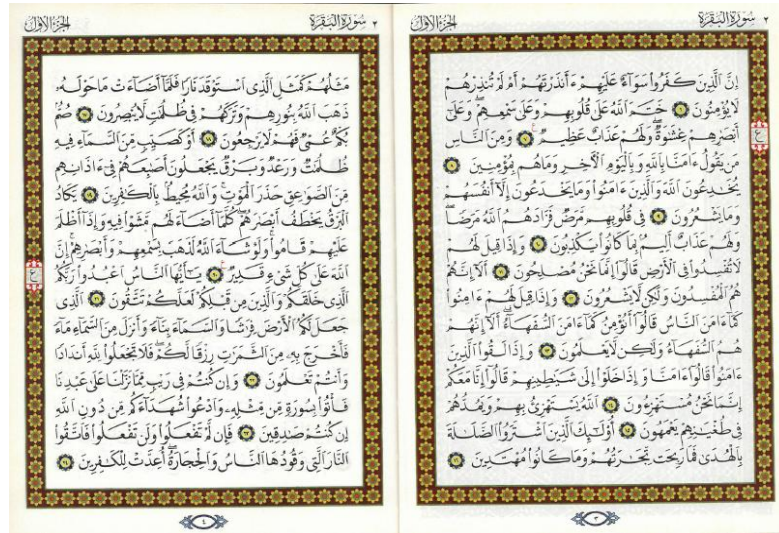 ٢ سُورَةُ البَقَرَةِ الجُزءُ الأوّل
إِنَّ ٱلَّذِينَ كَفَرُوا۟ سَوَآءٌ عَلَيْهِمْ ءَأَنذَرْتَهُمْ أَمْ لَمْ تُنذِرْهُمْ
لَا يُؤْمِنُونَ ٦ خَتَمَ ٱللَّهُ عَلَىٰ قُلُوبِهِمْ وَعَلَىٰ سَمْعِهِمْ ۖ وَعَلَىٰٓ
أَبْصَٰرِهِمْ غِشَٰوَةٌ ۖ وَلَهُمْ عَذَابٌ عَظِيمٌ ٧ وَمِنَ ٱلنَّاسِ
مَن يَقُولُ ءَامَنَّا بِٱللَّهِ وَبِٱلْيَوْمِ ٱلْءَاخِرِ وَمَا هُم بِمُؤْمِنِينَ ٨
يُخَٰدِعُونَ ٱللَّهَ وَٱلَّذِينَ ءَامَنُوا۟ وَمَا يَخْدَعُونَ إِلَّآ أَنفُسَهُمْ
وَمَا يَشْعُرُونَ ٩ فِى قُلُوبِهِم مَّرَضٌ فَزَادَهُمُ ٱللَّهُ مَرَضًا ۖ
وَلَهُمْ عَذَابٌ أَلِيمٌۢ بِمَا كَانُوا۟ يَكْذِبُونَ ١٠ وَإِذَا قِيلَ لَهُمْ
لَا تُفْسِدُوا۟ فِى ٱلْأَرْضِ قَالُوٓا۟ إِنَّمَا نَحْنُ مُصْلِحُونَ ١١ أَلَآ إِنَّهُمْ
هُمُ ٱلْمُفْسِدُونَ وَلَٰكِن لَّا يَشْعُرُونَ ١٢ وَإِذَا قِيلَ لَهُمْ ءَامِنُوا۟
كَمَآ ءَامَنَ ٱلنَّاسُ قَالُوٓا۟ أَنُؤْمِنُ كَمَآ ءَامَنَ ٱلسُّفَهَآءُ ۗ أَلَآ إِنَّهُمْ
هُمُ ٱلسُّفَهَآءُ وَلَٰكِن لَّا يَعْلَمُونَ ١٣ وَإِذَا لَقُوا۟ ٱلَّذِينَ
ءَامَنُوا۟ قَالُوٓا۟ ءَامَنَّا وَإِذَا خَلَوْا۟ إِلَىٰ شَيَٰطِينِهِمْ قَالُوٓا۟ إِنَّا مَعَكُمْ
إِنَّمَا نَحْنُ مُسْتَهْزِءُونَ ١٤ ٱللَّهُ يَسْتَهْزِئُ بِهِمْ وَيَمُدُّهُمْ
فِى طُغْيَٰنِهِمْ يَعْمَهُونَ ١٥ أُو۟لَٰٓئِكَ ٱلَّذِينَ ٱشْتَرَوُا۟ ٱلضَّلَٰلَةَ
بِٱلْهُدَىٰ فَمَا رَبِحَت تِّجَٰرَتُهُمْ وَمَا كَانُوا۟ مُهْتَدِينَ ١٦
ع
٣
٢ سُورَةُ البَقَرَةِ الجُزءُ الأوّل
مَثَلُهُمْ كَمَثَلِ ٱلَّذِى ٱسْتَوْقَدَ نَارًا فَلَمَّآ أَضَآءَتْ مَا حَوْلَهُۥ
ذَهَبَ ٱللَّهُ بِنُورِهِمْ وَتَرَكَهُمْ فِى ظُلُمَٰتٍ لَّا يُبْصِرُونَ ١٧ صُمٌّۢ
بُكْمٌ عُمْىٌ فَهُمْ لَا يَرْجِعُونَ ١٨ أَوْ كَصَيِّبٍ مِّنَ ٱلسَّمَآءِ فِيهِ
ظُلُمَٰتٌ وَرَعْدٌ وَبَرْقٌ يَجْعَلُونَ أَصَٰبِعَهُمْ فِىٓ ءَاذَانِهِم
مِّنَ ٱلصَّوَٰعِقِ حَذَرَ ٱلْمَوْتِ ۚ وَٱللَّهُ مُحِيطٌۢ بِٱلْكَٰفِرِينَ ١٩ يَكَادُ
ٱلْبَرْقُ يَخْطَفُ أَبْصَٰرَهُمْ ۖ كُلَّمَآ أَضَآءَ لَهُم مَّشَوْا۟ فِيهِ وَإِذَآ أَظْلَمَ
عَلَيْهِمْ قَامُوا۟ ۚ وَلَوْ شَآءَ ٱللَّهُ لَذَهَبَ بِسَمْعِهِمْ وَأَبْصَٰرِهِمْ ۚ إِنَّ
ٱللَّهَ عَلَىٰ كُلِّ شَىْءٍ قَدِيرٌ ٢٠ يَٰٓأَيُّهَا ٱلنَّاسُ ٱعْبُدُوا۟ رَبَّكُمُ
ٱلَّذِى خَلَقَكُمْ وَٱلَّذِينَ مِن قَبْلِكُمْ لَعَلَّكُمْ تَتَّقُونَ ٢١ ٱلَّذِى
جَعَلَ لَكُمُ ٱلْأَرْضَ فِرَٰشًا وَٱلسَّمَآءَ بِنَآءً وَأَنزَلَ مِنَ ٱلسَّمَآءِ مَآءً
فَأَخْرَجَ بِهِۦ مِنَ ٱلثَّمَرَٰتِ رِزْقًا لَّكُمْ ۖ فَلَا تَجْعَلُوا۟ لِلَّهِ أَندَادًا
وَأَنتُمْ تَعْلَمُونَ ٢٢ وَإِن كُنتُمْ فِى رَيْبٍ مِّمَّا نَزَّلْنَا عَلَىٰ عَبْدِنَا
فَأْتُوا۟ بِسُورَةٍ مِّن مِّثْلِهِۦ وَٱدْعُوا۟ شُهَدَآءَكُم مِّن دُونِ ٱللَّهِ
إِن كُنتُمْ صَٰدِقِينَ ٢٣ فَإِن لَّمْ تَفْعَلُوا۟ وَلَن تَفْعَلُوا۟ فَٱتَّقُوا۟
ٱلنَّارَ ٱلَّتِى وَقُودُهَا ٱلنَّاسُ وَٱلْحِجَارَةُ ۖ أُعِدَّتْ لِلْكَٰفِرِينَ ٢٤
ع
٤